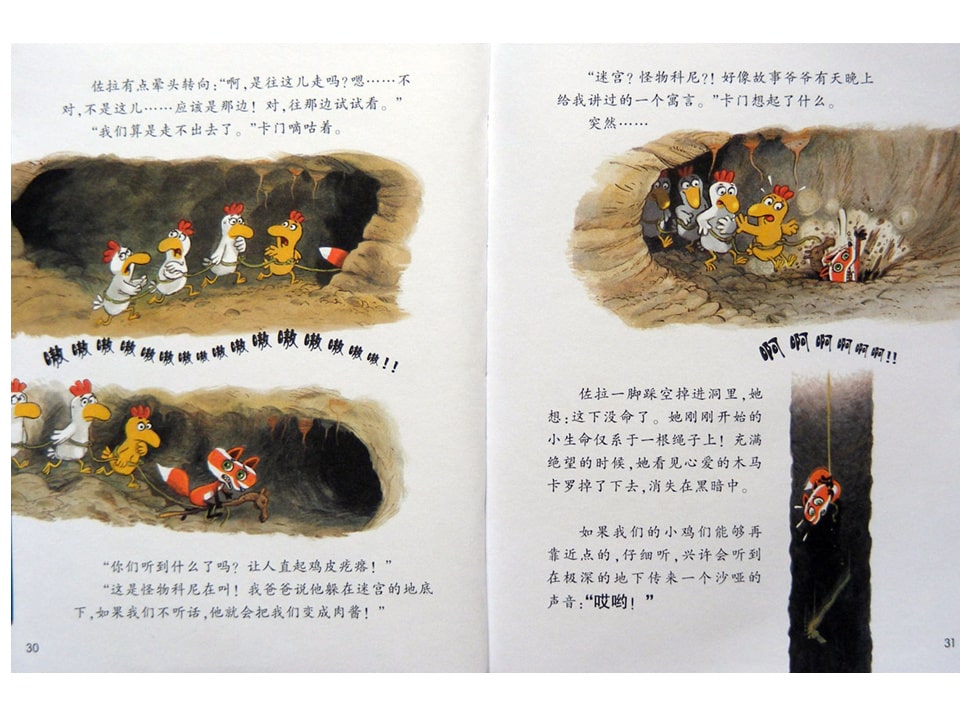 佐拉有点晕头转向：“啊，是往这儿走吗？嗯……不
对，不是这儿……应该是那边！对，往那边试试看。”
“我们算是走不出去了。”卡门嘀咕着。
嗷嗷嗷嗷嗷嗷嗷嗷嗷嗷嗷嗷嗷嗷嗷!!
“你们听到什么了吗？让人直起鸡皮疙瘩！”
“这是怪物科尼在叫！我爸爸说他躲在迷宫的地底
下，如果我们不听话，他就会把我们变成肉酱！”
30
“迷宫？怪物科尼?！好像故事爷爷有天晚上
给我讲过的一个寓言。”卡门想起了什么。
突然……
啊啊啊啊啊啊!!
佐拉一脚踩空掉进洞里，她
想：这下没命了。她刚刚开始的
小生命仅系于一根绳子上！充满
绝望的时候，她看见心爱的木马
卡罗掉了下去，消失在黑暗中。
如果我们的小鸡们能够再
靠近点的，仔细听，兴许会听到
在极深的地下传来一个沙哑的
声音：“哎哟！”
31